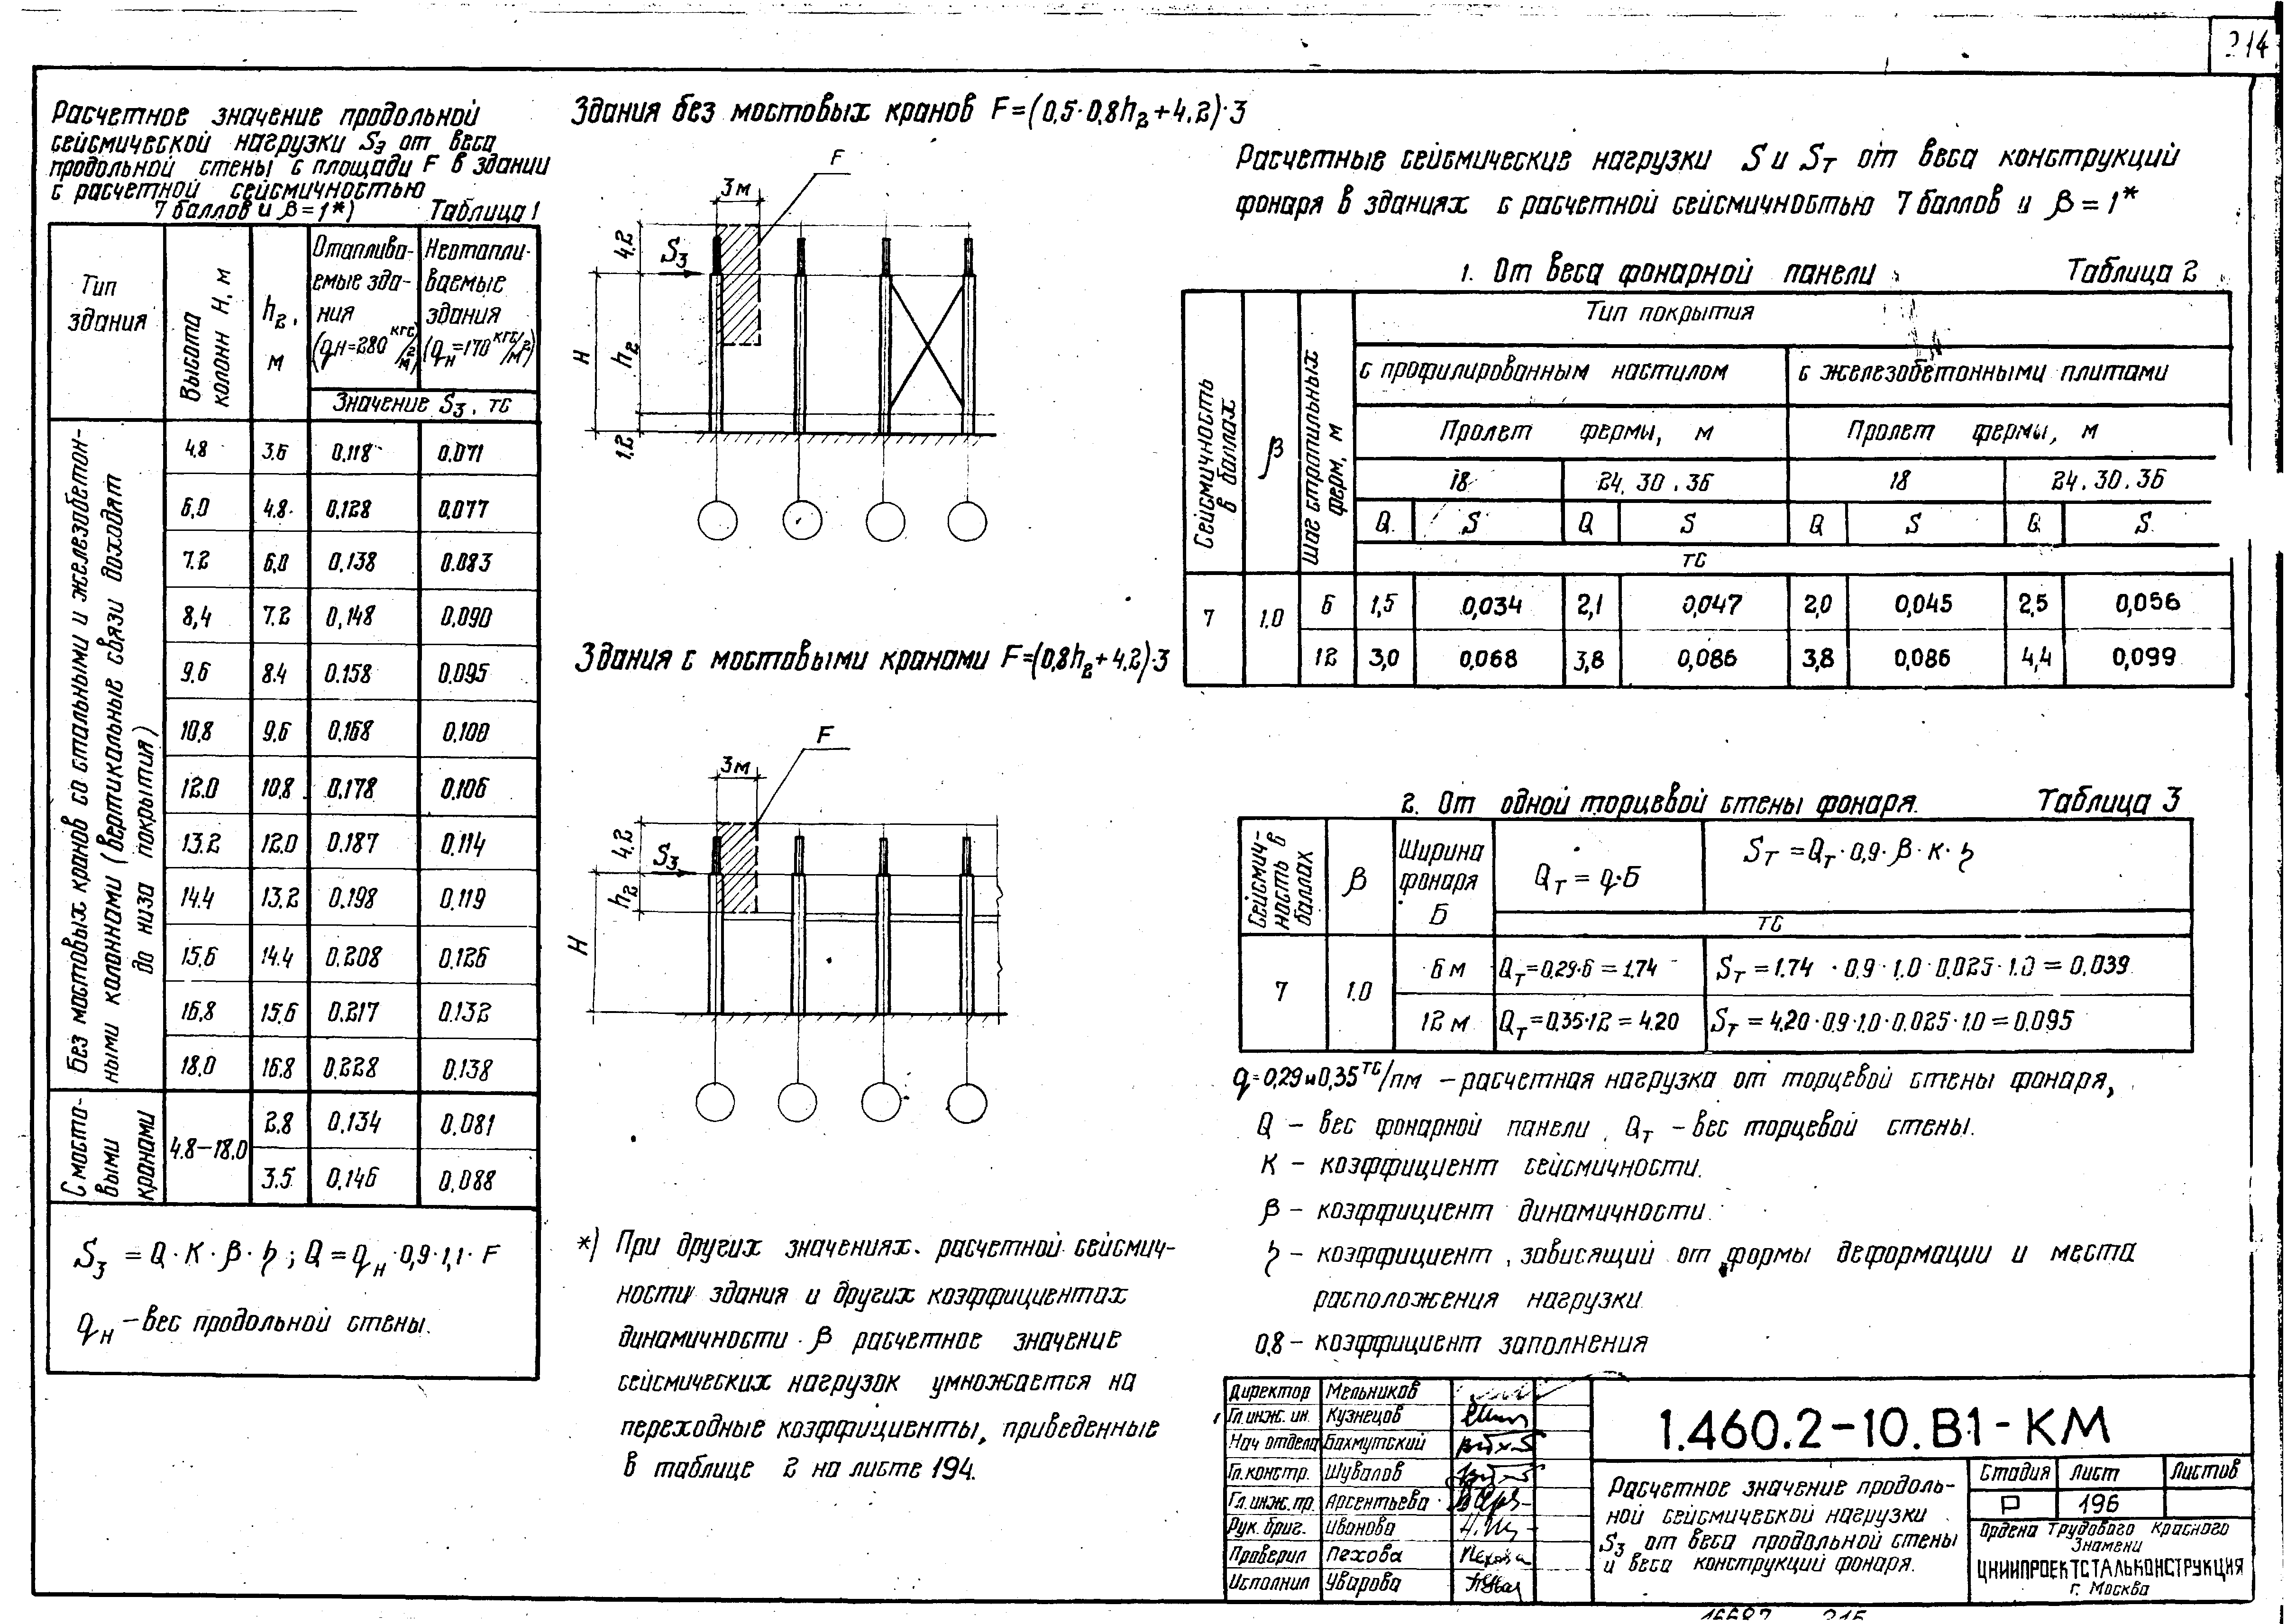 214
Расчетное значение продольной
сейсмической нагрузки S₃ от веса
продольной стены с площади F в здании
с расчетной сейсмичностью
7 баллов и β=1*)
Таблица 1
Тип здания
Высота колонн H, м
h₂, м
Отапливаемые здания (qн=280 кгс/м²)
Неотапливаемые здания (qн=170 кгс/м²)
Значение S₃, тс
Без мостовых кранов со стальными и железобетонными колоннами (вертикальные связи доходят до низа покрытия)
4.8 3.6 0.118 0.071
6.0 4.8 0.128 0.077
7.2 6.0 0.138 0.083
8,4 7.2 0,148 0.090
9.6 8.4 0.158 0.095
10.8 9.6 0.168 0.100
12.0 10.8 0.178 0.106
13.2 12.0 0.187 0.114
14.4 13.2 0.198 0.119
15.6 14.4 0.208 0.126
16.8 15.6 0.217 0.132
18.0 16.8 0.228 0.138
С мостовыми кранами
4.8–18.0
2.8 0.134 0.081
3.5 0.146 0.088
S₃ = Q·K·β·η; Q = qн·0,9·1,1·F
qн – вес продольной стены.
Здания без мостовых кранов F=(0,5·0,8h₂+4.2)·3
F
3м
4.2
S₃
H
h₂
1.2
Здания с мостовыми кранами F=(0,8h₂+4.2)·3
F
3м
4.2
S₃
h₂
H
*) При других значениях расчетной сейсмич-
ности здания и других коэффициентах
динамичности β расчетное значение
сейсмических нагрузок умножается на
переходные коэффициенты, приведенные
в таблице 2 на листе 194.
Расчетные сейсмические нагрузки S и Sт от веса конструкций
фонаря в зданиях с расчетной сейсмичностью 7 баллов и β=1*
1. От веса фонарной панели
Таблица 2
Сейсмичность в баллах
β
Шаг стропильных ферм, м
Тип покрытия
с профилированным настилом
с железобетонными плитами
Пролет фермы, м
Пролет фермы, м
18 24.30.36 18 24.30.36
Q S Q S Q S Q S
тс
7 1.0
6 1,5 0,034 2,1 0,047 2,0 0,045 2,5 0,056
12 3,0 0,068 3,8 0,086 3,8 0,086 4,4 0,099
2. От одной торцевой стены фонаря.
Таблица 3
Сейсмичность в баллах
β
Ширина фонаря Б
Qт = q·Б
Sт = Qт·0,9·β·K·η
тс
7 1.0
6 м Qт=0.29·6 = 1.74 Sт = 1.74 · 0.9 · 1.0 · 0.025 · 1.0 = 0.039
12 м Qт=0.35·12 = 4.20 Sт = 4.20·0.9·1.0·0.025·1.0 = 0.095
q=0,29 и 0,35 тс/пм – расчетная нагрузка от торцевой стены фонаря,
Q – вес фонарной панели, Qт – вес торцевой стены.
К – коэффициент сейсмичности.
β – коэффициент динамичности.
η – коэффициент, зависящий от формы деформации и места
расположения нагрузки
0,8 – коэффициент заполнения
Директор Мельников
Гл. инж. ин. Кузнецов
Нач отдела Бахмутский
Гл. констр. Шувалов
Гл. инж. пр. Арсентьева
Рук. бриг. Иванова
Проверил Пехова
Исполнил Уварова
1.460.2–10.В1–КМ
Расчетное значение продоль-
ной сейсмической нагрузки
S₃ от веса продольной стены
и веса конструкций фонаря.
Стадия Лист Листов
Р 196
Ордена Трудового Красного
Знамени
ЦНИИПРОЕКТСТАЛЬКОНСТРУКЦИЯ
г. Москва
16687 215